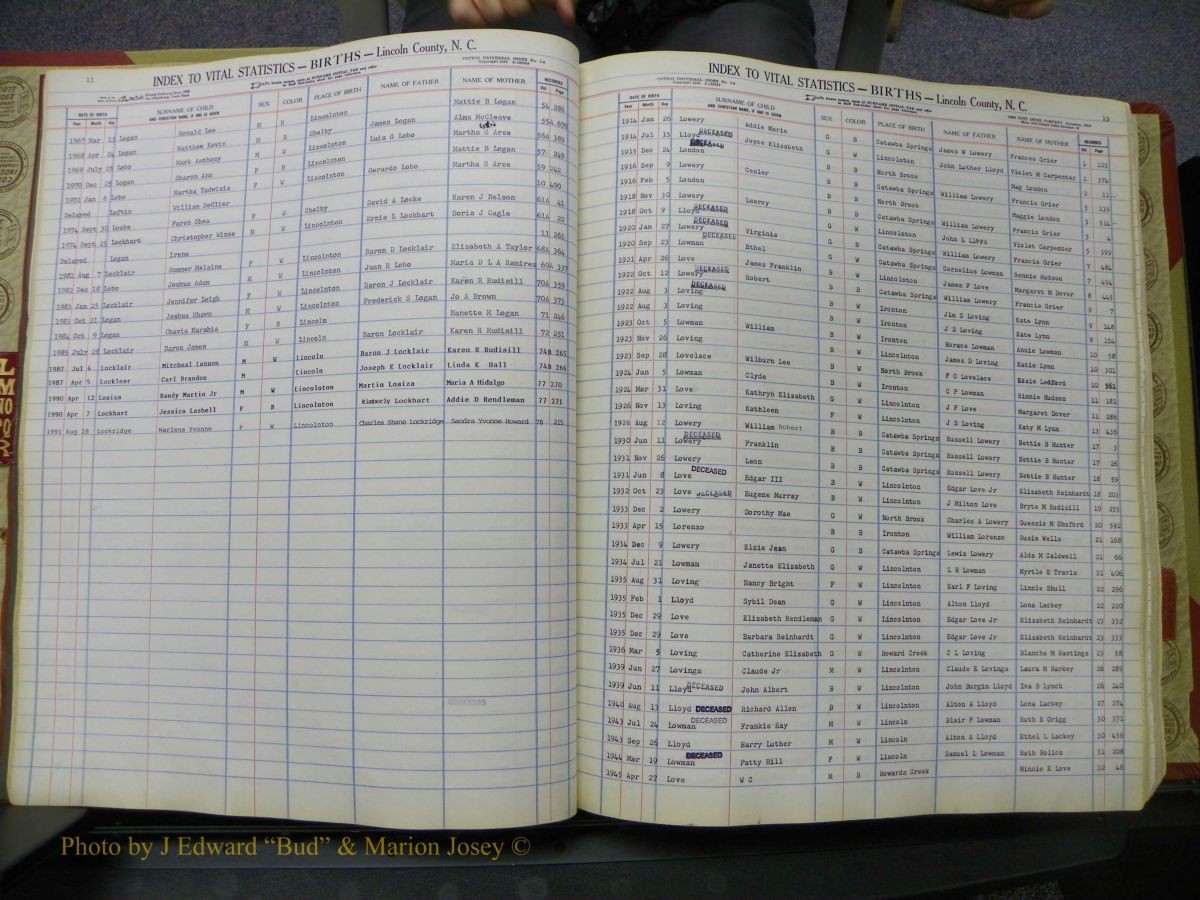 13
INDEX TO VITAL STATISTICS — BIRTHS — Lincoln County, N. C.
DATE OF BIRTH
Year Month Day
SURNAME OF CHILD
AND CHRISTIAN NAME, IF ONE IS GIVEN
SEX COLOR PLACE OF BIRTH NAME OF FATHER NAME OF MOTHER RECORDED
Vol. Page
1967 Mar 13 Logan Ronald Lee M B Lincolnton Mattie B Logan 54 286
1968 Apr 24 Logan Matthew Kevin M B Shelby James Logan Alma McCleave 55A 670
1969 July 25 Lobo Mark Anthony M W Lincolnton Luis G Lobo Martha S Arce 56A 389
1970 Dec 25 Logan Sharon Ann F B Lincolnton Mattie B Logan 57 249
1972 Jan 6 Lobo Martha Yadwizia F W Lincolnton Gerardo Lobo Martha S Arce 59 242
Delayed Loftin William DeOlier 10 490
1974 Sept 30 Locke Faren Shea F W Shelby David A Locke Karen J Nelson 61A 41
1974 Sept 25 Lockhart Christopher Winse M W Lincolnton Ernie L Lockhart Doris J Cagle 61A 22
Delayed Logan Irene 11 261
1981 Aug 7 Locklair Summer Melaine F W Lincolnton Baron D Locklair Elizabeth A Taylor 68A 364
1982 Dec 18 Lobo Joshua Adam M W Lincolnton Juan R Lobo Maria D L A Ramirez 69A 337
1983 Jan 25 Locklair Jennifer Leigh F W Lincolnton Baron J Locklair Karen R Rudisill 70A 359
1983 Oct 21 Logan Joshua Shawn M W Lincolnton Frederick S Logan Jo A Brown 70A 373
1984 Oct 9 Logan Chavia Marshia F B Lincoln Nanette H Logan 71 246
1985 July 28 Locklair Baron James M W Lincoln Baron Locklair Karen H Rudisill 72 251
1987 Jul 4 Locklair Mitcheal Lennon M W Lincoln Baron J Locklair Karen R Rudisill 74B 265
1987 Apr 5 Locklear Carl Brandon M Lincoln Joseph E Locklair Linda K Hall 74B 266
1990 Apr 12 Loaiza Randy Martin Jr M W Lincolnton Martin Loaiza Maria A Hidalgo 77 270
1990 Apr 7 Lockhart Jessica Lashell F B Lincolnton Kimberly Lockhart Addie D Rendleman 77 271
1991 Aug 28 Lockridge Marlena Yvonne F W Lincolnton Charles Shane Lockridge Sendra Yvonne Howard 78 215
INDEX TO VITAL STATISTICS — BIRTHS — Lincoln County, N. C.
13
DATE OF BIRTH
Year Month Day
SURNAME OF CHILD
AND CHRISTIAN NAME, IF ONE IS GIVEN
SEX COLOR PLACE OF BIRTH NAME OF FATHER NAME OF MOTHER RECORDED
Vol. Page
1914 Jan 26 Lowery Addie Marie G B Catawba Springs James W Lowery Frances Grier 1 103
1914 Jul 15 Lloyd DECEASED Joyce Elizabeth G W Lincolnton John Luther Lloyd Violet M Carpenter 1 374
1915 Dec 24 London DECEASED B B North Brook Mag London 2 11
1916 Sep 9 Lowery Cesler B B Catawba Springs William Lowery Francis Grier 3 139
1916 Feb 5 London B B North Brook Maggie London 3 514
1918 Nov 30 Lowery Lueroy B B Catawba Springs William Lowery Francis Grier 5 4
1918 Oct 9 Lloyd DECEASED G W Lincolnton John L Lloyd Violet Carpenter 5 399
1920 Jan 27 Lowery DECEASED Virginia G B Catawba Springs William Lowery Francis Grier 7 484
1920 Sep 23 Lowman DECEASED Ethel G W Catawba Springs Cornelius Lowman Rennie Hudson 7 494
1921 Apr 26 Love James Franklin B W Lincolnton James F Love Margaret M Dover 8 445
1922 Oct 12 Lowery DECEASED Robert B B Catawba Springs William Lowery Francis Grier 9 7
1922 Aug 3 Loving DECEASED B W Ironton Jim S Loving Kate Lynn 9 148
1922 Aug 3 Loving B W Ironton J S Loving Kate Lynn 9 154
1923 Oct 5 Lowman William B W Ironton Horace Lowman Annie Lowman 10 58
1923 Nov 26 Loving B W Lincolnton James D Loving Katie Lynn 10 301
1923 Sep 28 Lovelace Wilburn Lee B W North Brook F G Lovelace Essie Ledford 10 561
1924 Jun 5 Lowman Clyde B W Ironton C P Lowman Rinnie Hudson 11 181
1924 Mar 31 Love Kathryn Elizabeth G W Lincolnton J F Love Margaret Dover 11 286
1926 Nov 13 Loving Kathleen F W Lincolnton J S Loving Katy M Lynn 13 436
1928 Aug 12 Lowery William Robert B B Catawba Springs Russell Lowery Nettie B Hunter 17 3
1930 Jun 11 Lowery DECEASED Franklin B B Catawba Springs Russell Lowery Nettie B Hunter 17 26
1931 Nov 26 Lowery Leon B B Catawba Springs Russell Lowery Nettie B Hunter 18 59
1931 Jun 8 Love DECEASED Edgar III B W Lincolnton Edgar Love Jr Elizabeth Reinhardt 18 203
1932 Oct 23 Love DECEASED Eugene Murray B W Lincolnton J Milton Love Bryte M Rudisill 19 255
1933 Dec 2 Lowery Dorothy Mae G W North Brook Charles A Lowery Quessie M Shuford 20 592
1933 Apr 15 Lorenzo B B Ironton William Lorenzo Susie Wells 21 168
1934 Dec 9 Lowery Elsie Jean G B Catawba Springs Lewis Lowery Alda M Caldwell 21 66
1934 Jul 21 Lowman Janette Elizabeth G W Lincolnton L H Lowman Myrtle E Travis 21 406
1935 Aug 31 Loving Nancy Bright F W Lincolnton Earl F Loving Linnie Shull 22 296
1935 Feb 1 Lloyd Sybil Dean G W Lincolnton Alton Lloyd Lona Lackey 22 220
1935 Dec 29 Love Elizabeth Rendleman G W Lincolnton Edgar Love Jr Elizabeth Reinhardt 23 332
1935 Dec 29 Love Barbara Reinhardt G W Lincolnton Edgar Love Jr Elizabeth Reinhardt 23 333
1936 Mar 5 Loving Catherine Elizabeth G W Howard Creek C L Loving Blanche M Hastings 23 58
1939 Jun 27 Lovings Claude Jr M W Lincolnton Claude E Lovings Laura M Harkey 26 289
1939 Jun 11 Lloyd DECEASED John Albert B W Lincolnton John Burgin Lloyd Iva B Lynch 26 140
1940 Aug 13 Lloyd DECEASED Richard Allen B W Lincolnton Alton A Lloyd Lona Lackey 27 274
1943 Jul 24 Lowman DECEASED Frankie Ray M W Lincoln Blair F Lowman Ruth E Grigg 30 371
1943 Sep 26 Lloyd Harry Luther M W Lincoln Alton A Lloyd Ethel L Lackey 30 436
1944 Mar 19 Lowman DECEASED Patty Hill F W Lincoln Samuel L Lowman Ruth Bolick 31 208
1945 Apr 27 Love W C M B Howards Creek Minnie E Love 32 46
Photo by J Edward “Bud” & Marion Josey ©